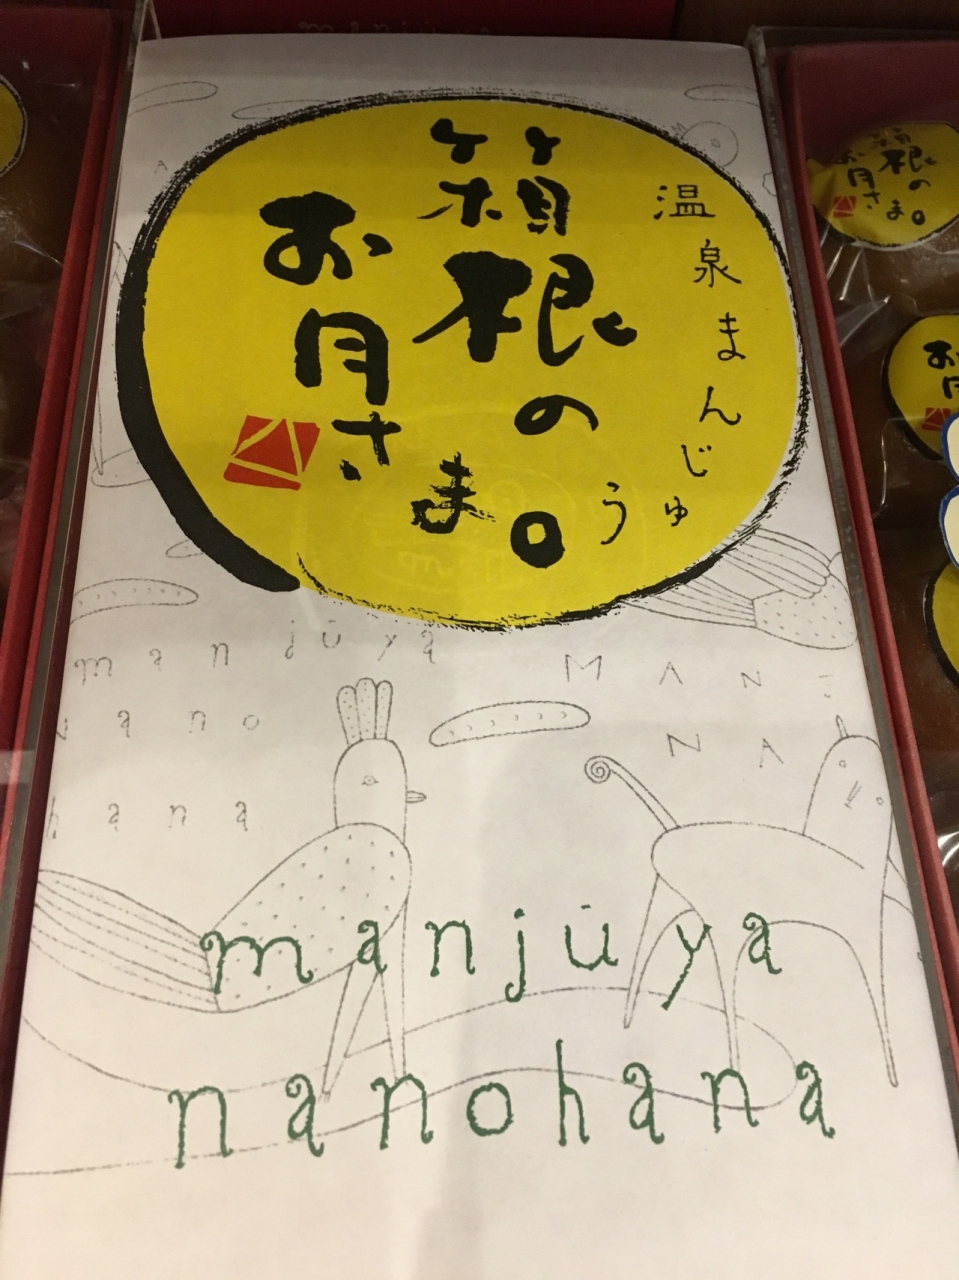 温泉まんじゅう
箱根の
お月さま。
manjūya
MANJ
nano
NA
hana
manjūya
nanohana
箱根の
お月さま。